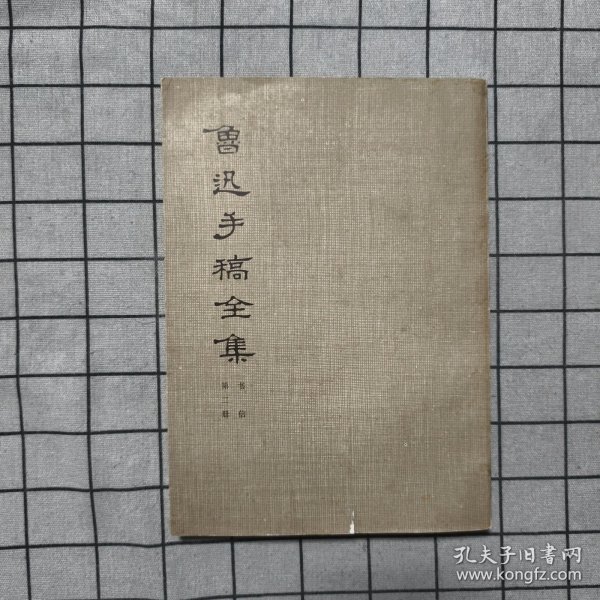 魯迅手稿全集
書信
第二册
孔夫子旧書网
www.kongfz.com